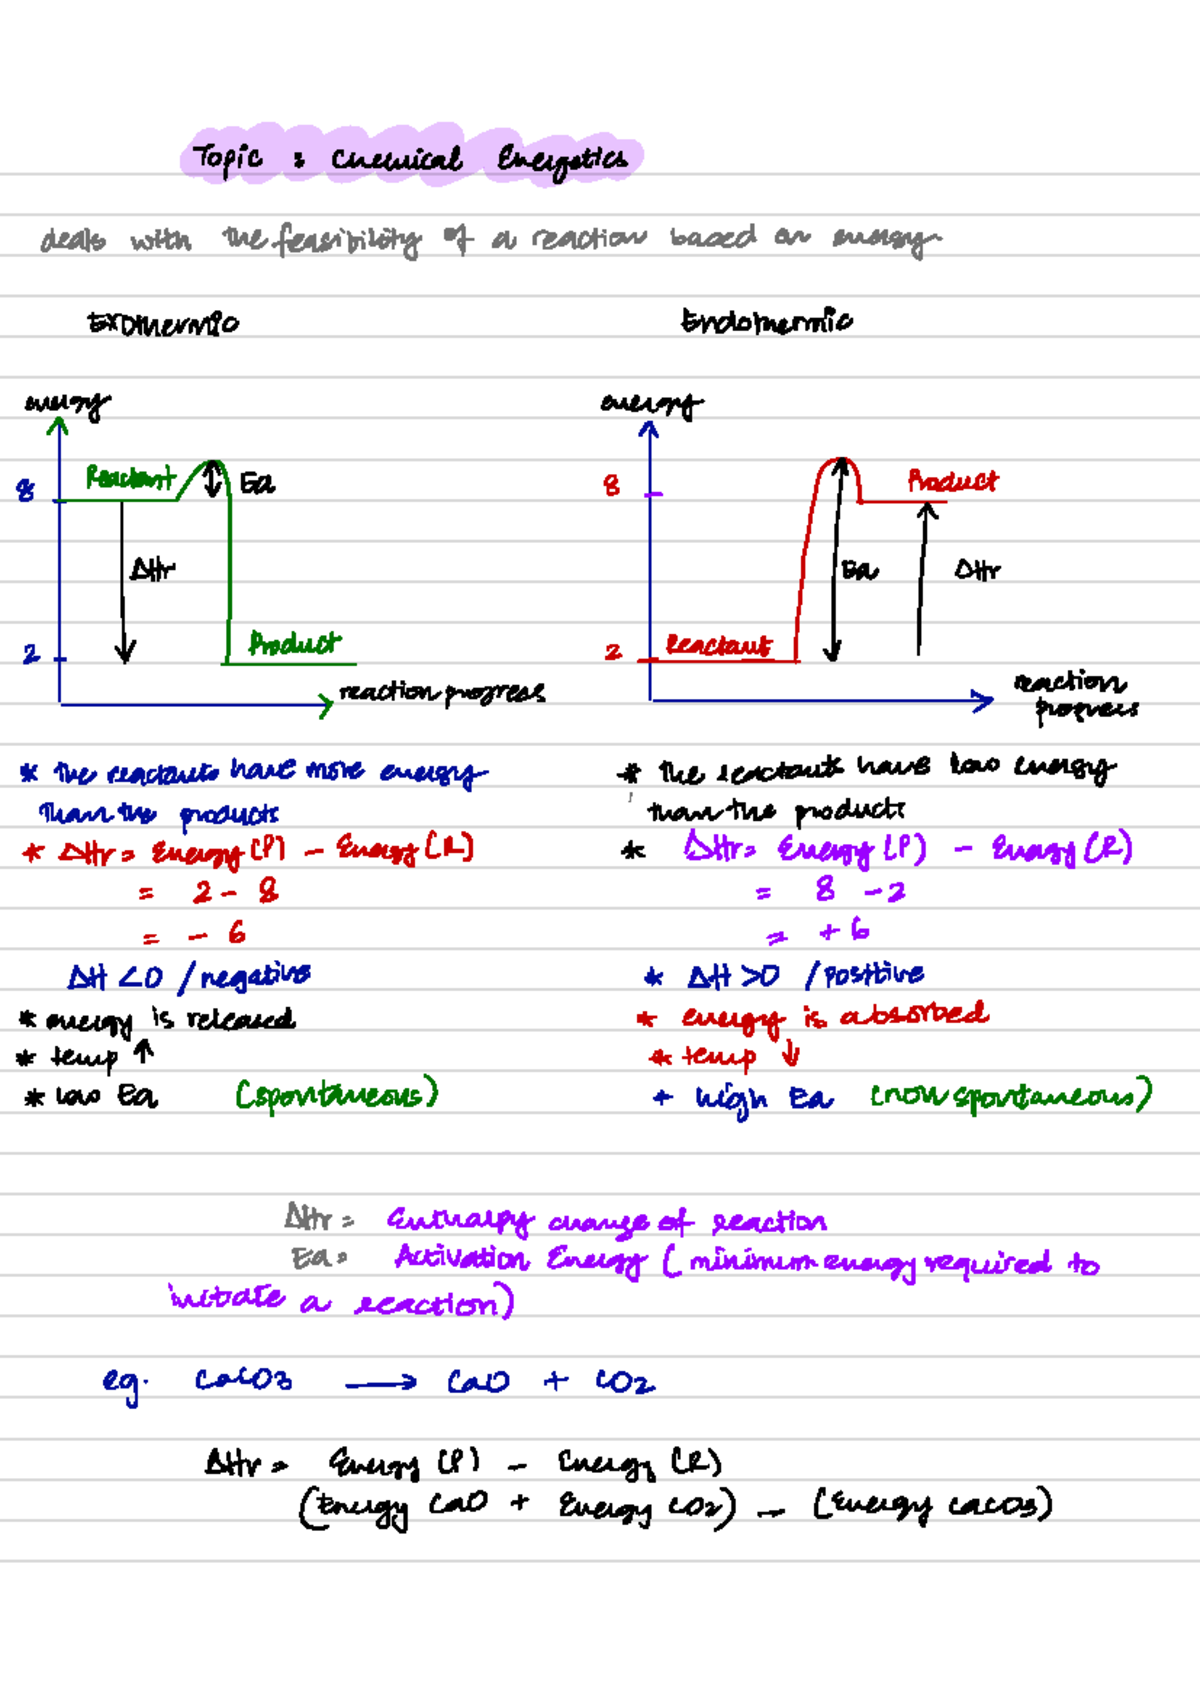 Topic : Chemical Energetics
deals with the feasibility of a reaction based on energy
Exothermic
energy
8
Reactant
Ea
ΔHr
2
Product
reaction progress
* the reactants have more energy
than the products
* ΔHr = Energy (P) - Energy (R)
= 2 - 8
= - 6
ΔH <0 / negative
* energy is released
* temp ↑
* low Ea (spontaneous)
Endothermic
energy
8
Product
Ea
ΔHr
2
Reactant
reaction
progress
* the reactants have low energy
than the products
* ΔHr = Energy (P) - Energy (R)
= 8 - 2
= + 6
* ΔH >0 / positive
* energy is absorbed
* temp ↓
+ high Ea (non spontaneous)
ΔHr = Enthalpy change of reaction
Ea = Activation Energy ( minimum energy required to
initiate a reaction)
eg. CaCO3 → CaO + CO2
ΔHr = Energy (P) - Energy (R)
(Energy CaO + Energy CO2) - (Energy CaCO3)